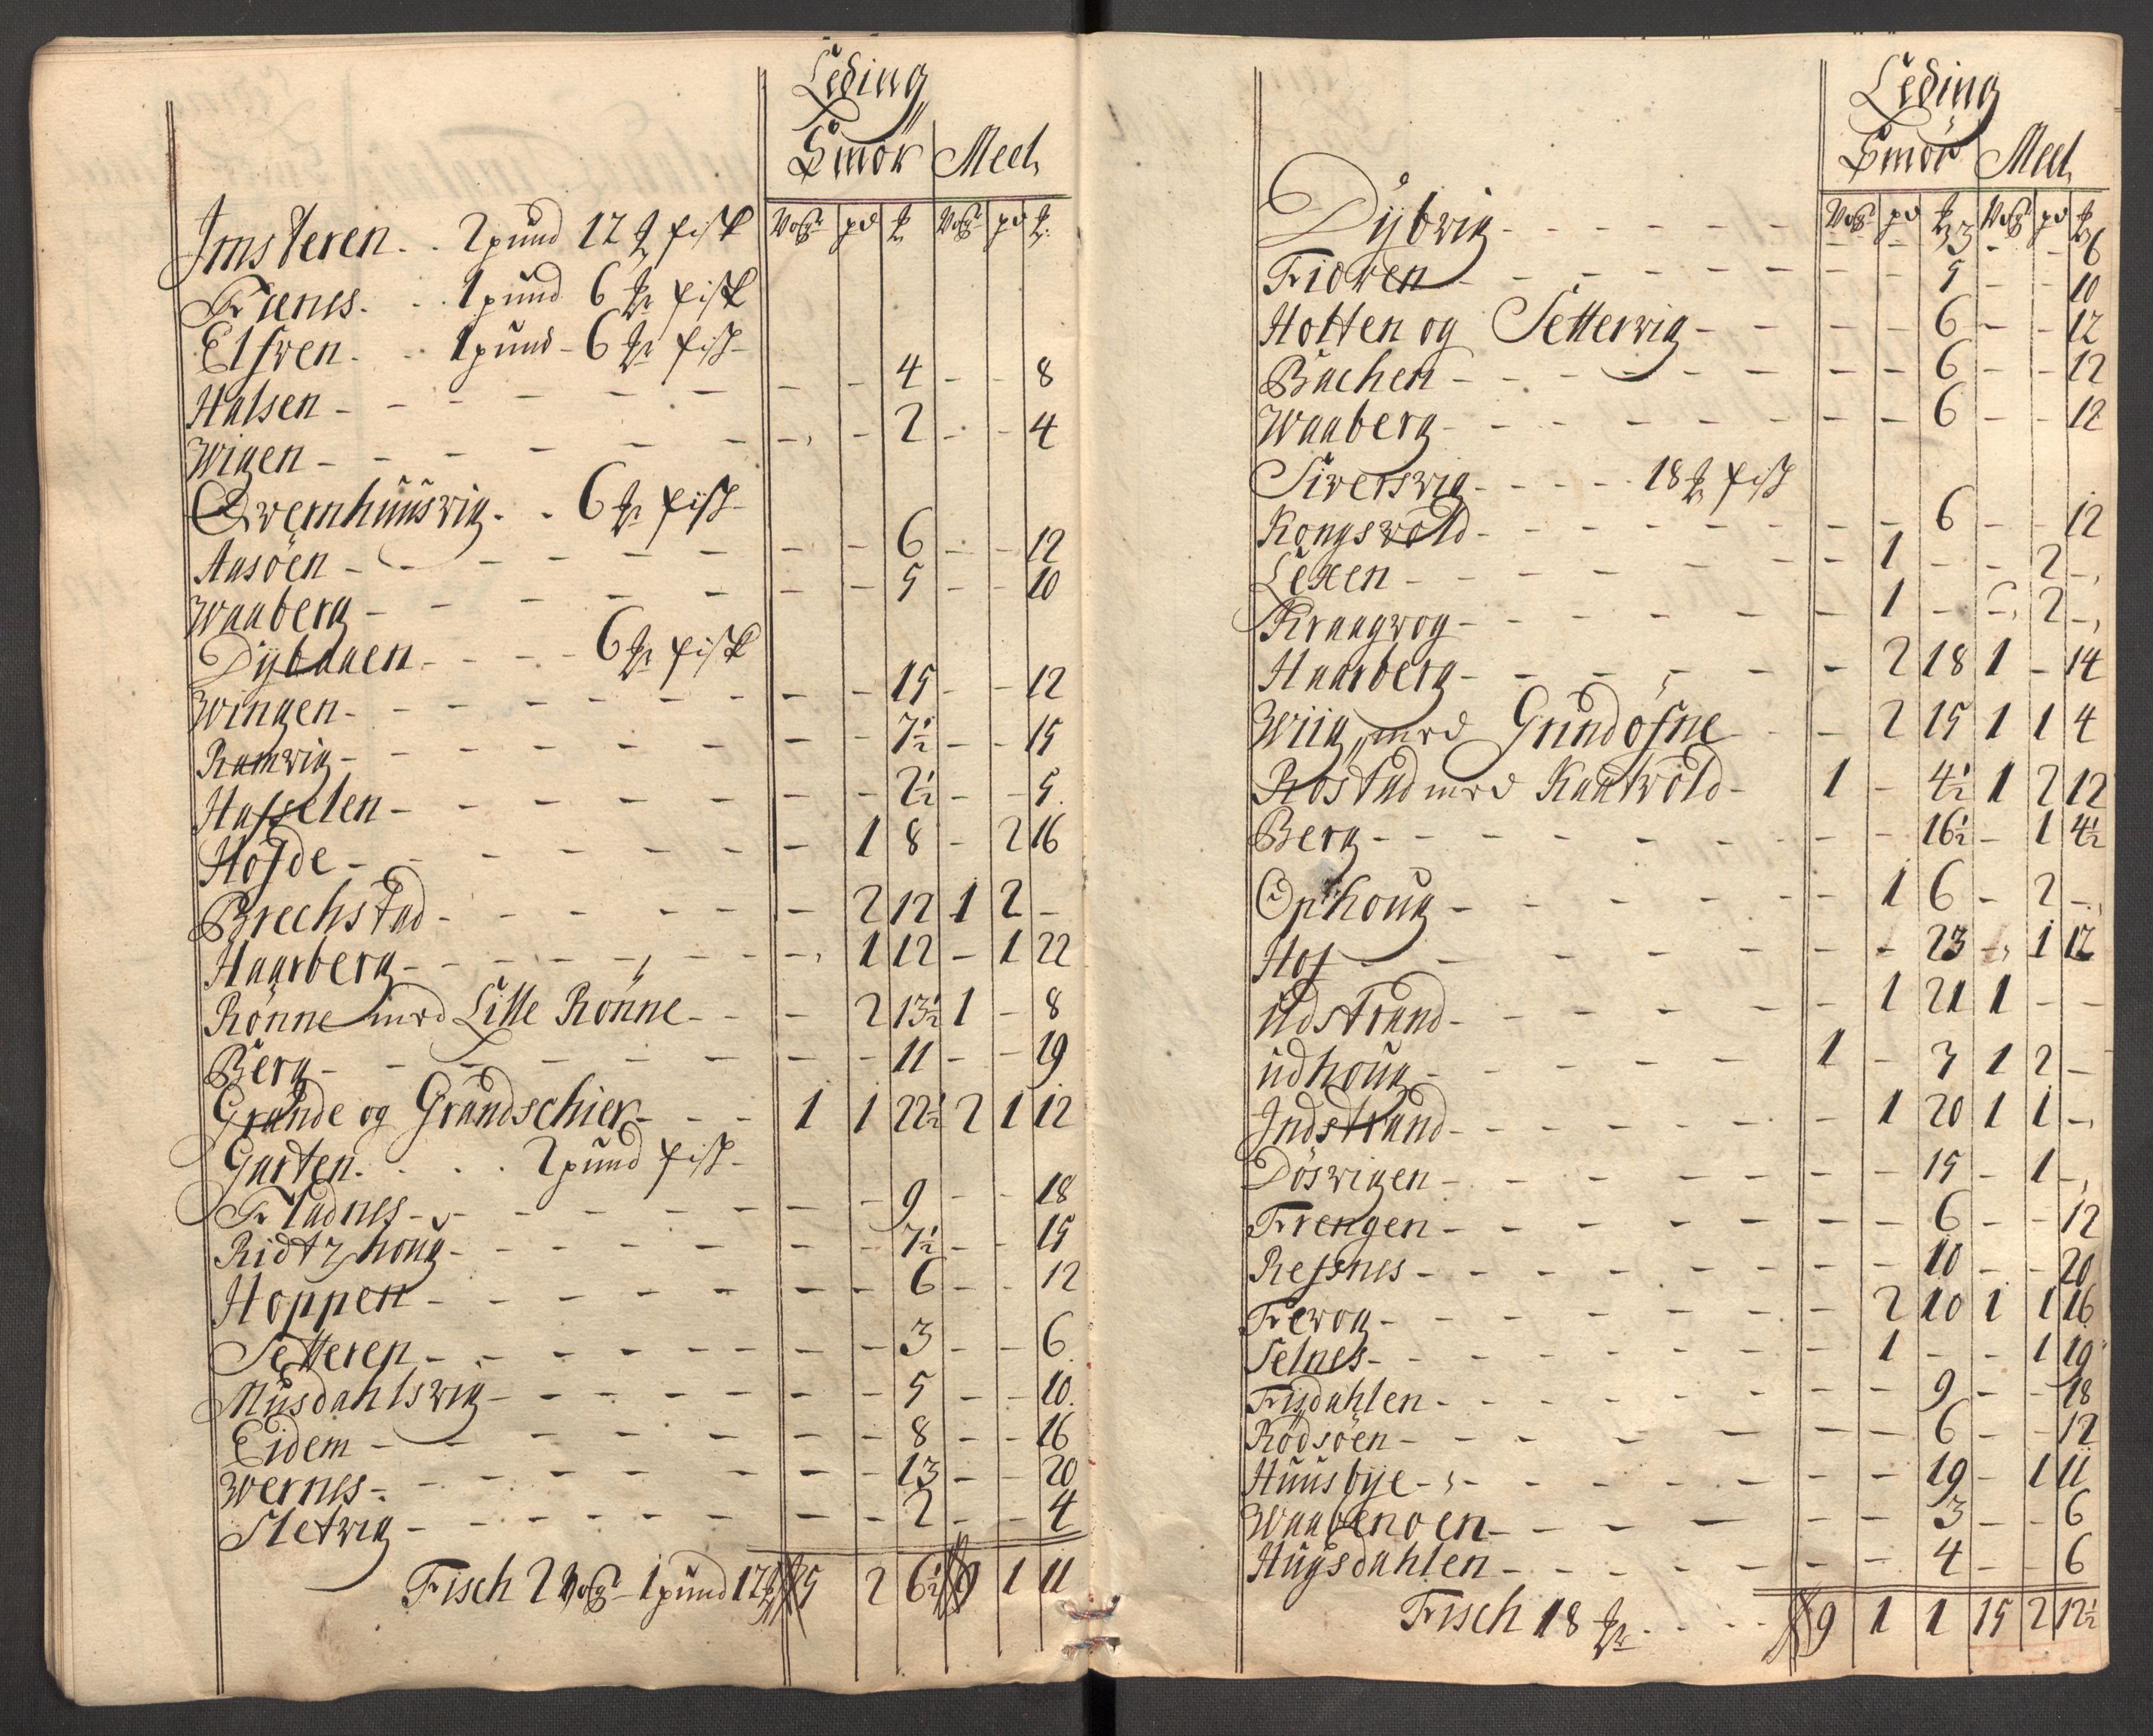 Leding
Smör Meel
Vog pd ℔ Vog pd ℔
Imsteren . . 2 pund 12 ℔ fisk
Frenes . . 1 pund 6 ℔ fisk
Elfven . . 1 pund - 6 ℔ fisk
Halsen - - - 4 - - 8
Wigen - - - 2 - - 4
Qvernhuusvig . . 6 ℔ fisk
Aasöen - - - 6 - - 12
Waaberg - - - 5 - - 10
Dybdaen - - - 6 ℔ fisk
Wingen - - - 15 - - 12
Ramvig - - - 7½ - - 15
Hasselen - - - 2½ - - 5
Höfde - - 1 8 - 2 16
Brechstad - - 2 12 1 2 -
Haarberg - - 1 12 - 1 22
Rönne med Lille Rönne - - 2 13½ 1 - 8
Berg - - - 11 - - 19
Grande og Grandschier - 1 1 22½ 2 1 12
Garten . . . 2 pund fisk
Fladnes - - - 9 - - 18
Ridtzhoug - - - 7½ - - 15
Hoppen - - - 6 - - 12
Setteren - - - 3 - - 6
Musdahlsvig - - - 5 - - 10
Eidem - - - 8 - - 16
Wernes - - - 13 - - 20
Sletvig - - - 2 - - 4
Fisch 2 Vog - 1 pund 12 ℔ 5 2 6½ 9 1 11
Leding
Smör Meel
Vog pd ℔ Vog pd ℔
Dybvig - - - 3 - - 6
Fioren - - - 5 - - 10
Hotten og Settervig - - - 6 - - 12
Bachen - - - 6 - - 12
Waaberg - - - 6 - - 12
Siversvig - - - 18 ℔ fisk
Kongsvold - - - 6 - - 12
Lexen - - 1 - - 2 -
Kraagvog - - 1 - - 2 -
Haarberg - - 2 18 1 - 14
Wiig med Grundöfne - 2 15 1 1 4
Röstad med Kaatvold - 1 - 4½ 1 2 12
Berg - - - 16½ - 1 4½
Ophoug - - 1 6 - 2 -
Hof - - - 23 - 1 12
Udstrand - - 1 21 1 - -
Udhoug - 1 - 3 1 2 -
Indstrand - - 1 20 1 1 -
Dösvigen - - - 15 - 1 -
Frengen - - - 6 - - 12
Ressnes - - - 10 - - 20
Frevog - - 2 10 1 1 16
Selnes - - 1 - - 1 19
Frisdahlen - - - 9 - - 18
Rödsöen - - - 6 - - 12
Huusbye - - - 19 - 1 11
Waabenoen - - - 3 - - 6
Hugsdahlen - - - 4 - - 6
Fisch 18 ℔ . . . 9 1 1 15 2 12½